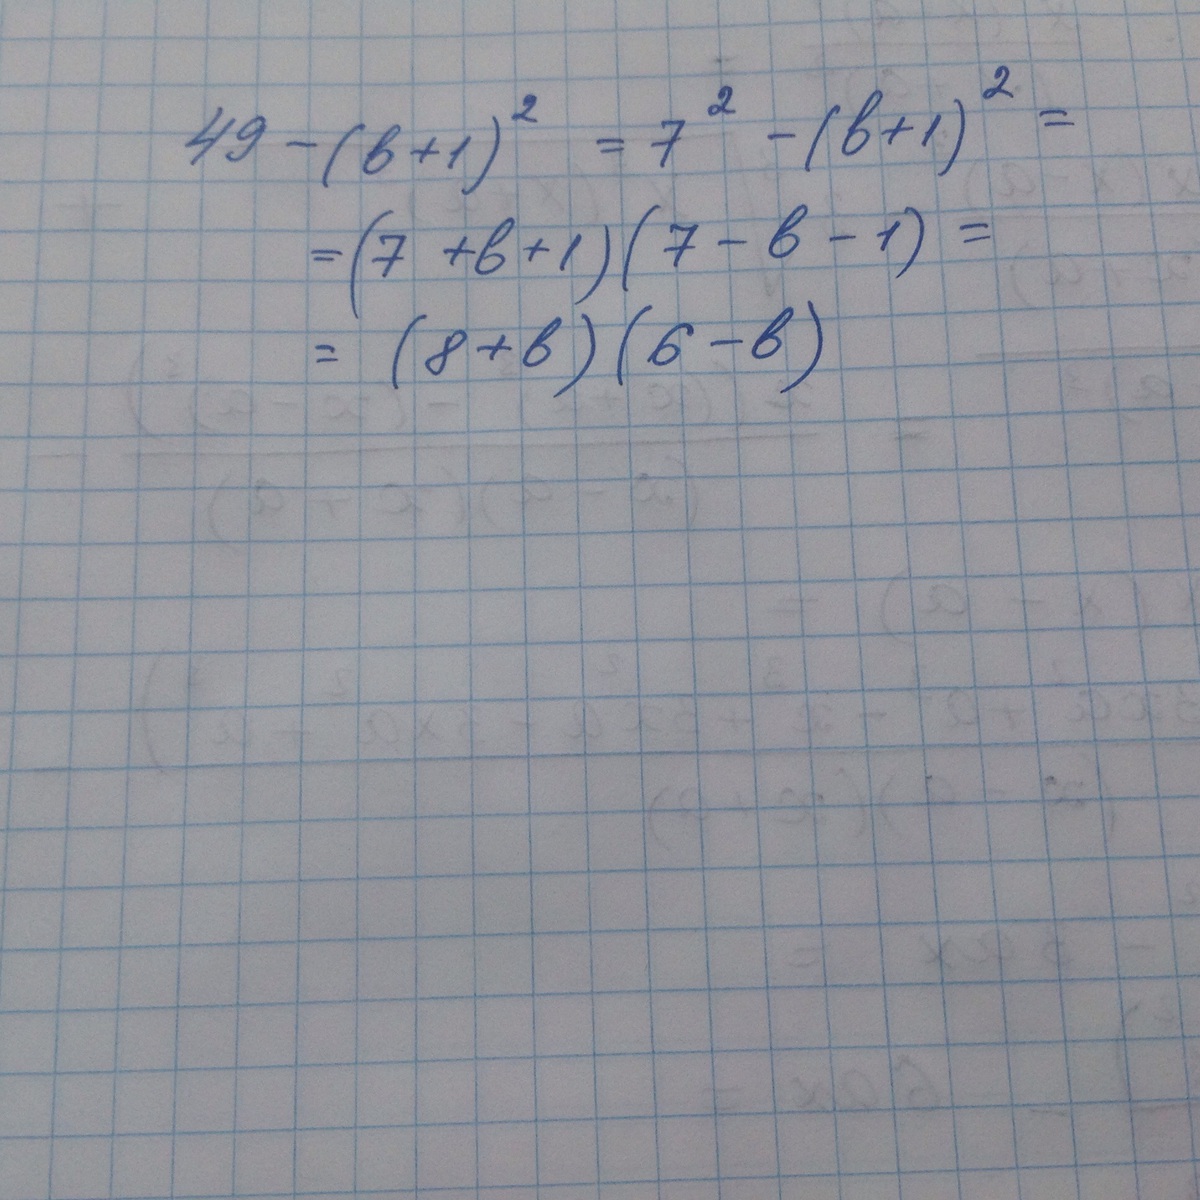 49 - (в+1)² = 7² - (в+1)² =
= (7 + в + 1)(7 - в - 1) =
= (8 + в)(6 - в)